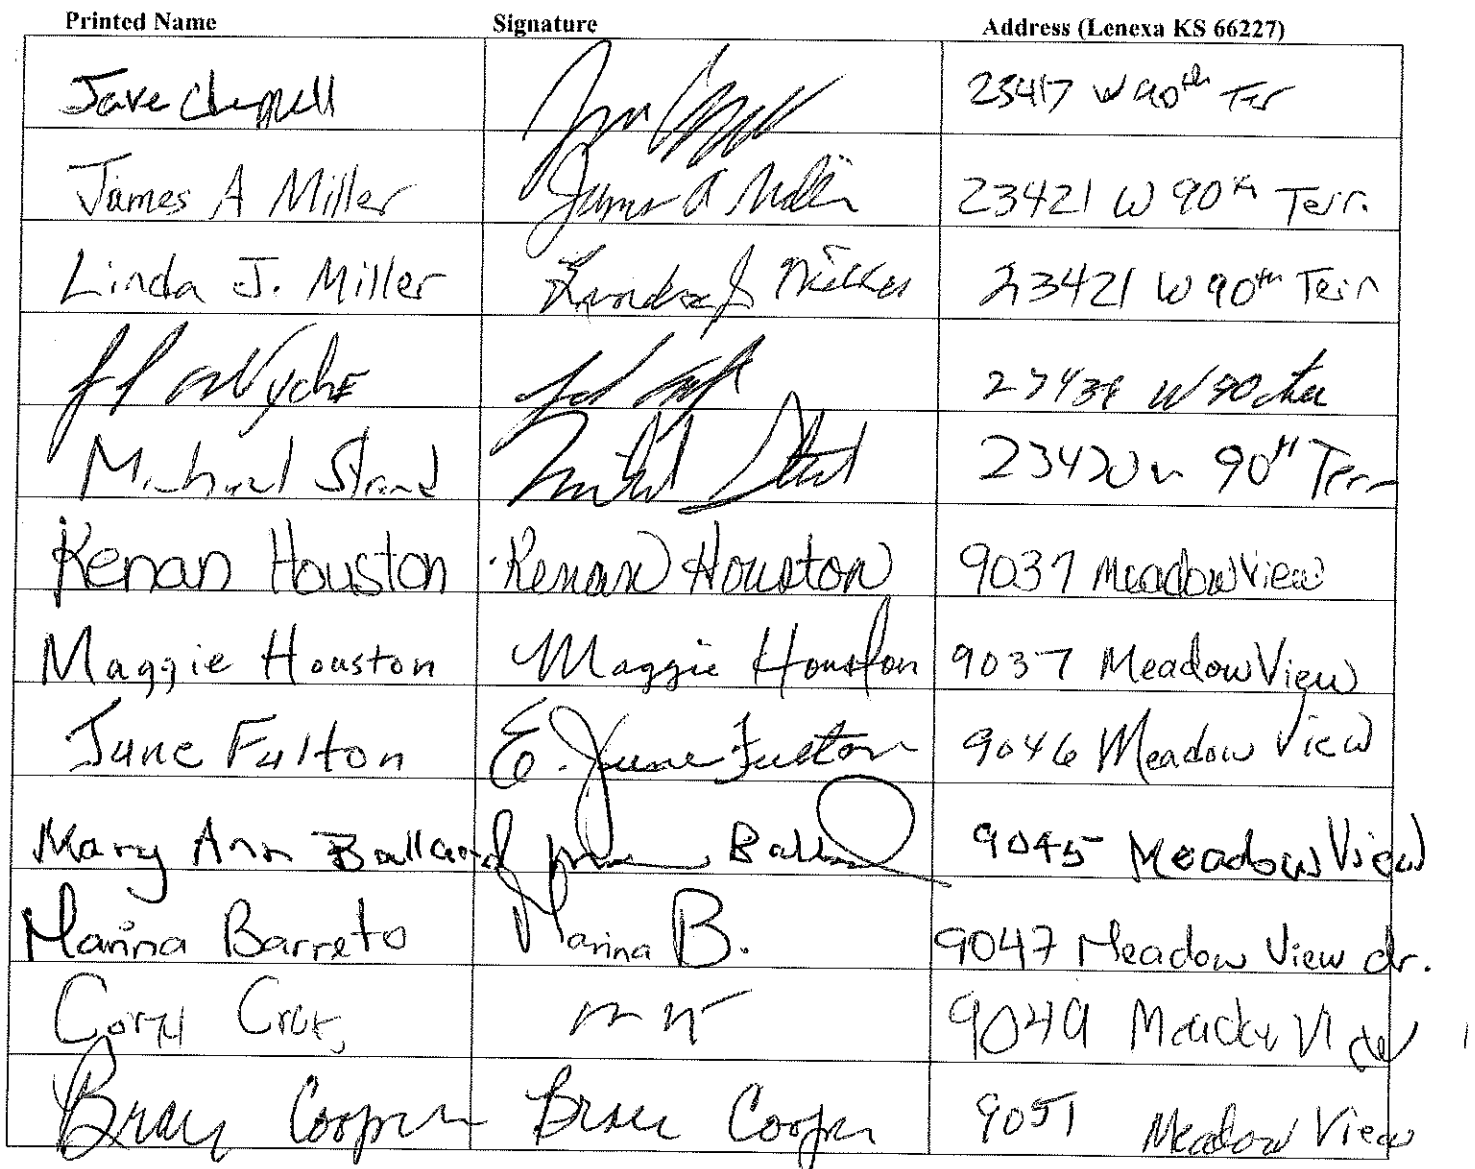 Printed Name Signature Address (Lenexa KS 66227)
23417 W 90th Ter
James A Miller James A Miller 23421 W 90th Terr.
Linda J. Miller Linda J Miller 23421 W 90th Terr
W 90
Michael Strand 90th Terr
Kenan Houston Kenan Houston 9037 Meadow View
Maggie Houston Maggie Houston 9037 Meadow View
June Fulton E. June Fulton 9046 Meadow View
Mary Ann Ballard 9045 Meadow View
Marina Barreto Marina B. 9047 Meadow View dr.
9049 Meadow View
Cooper Cooper 9051 Meadow View